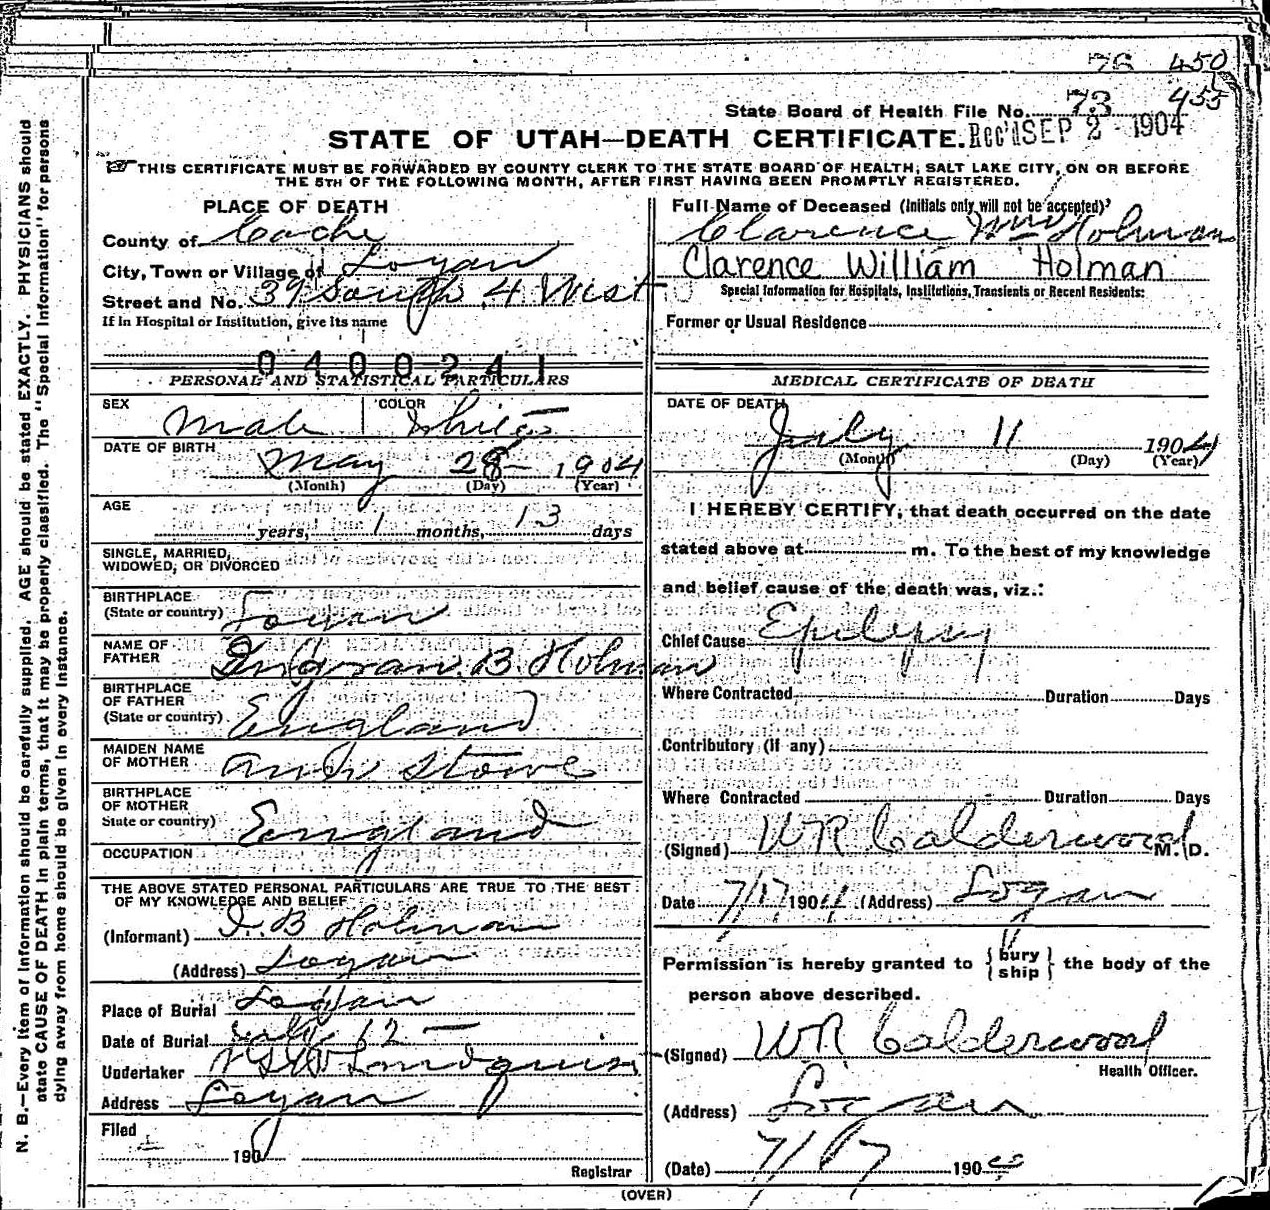 76 450
State Board of Health File No. 73 455
STATE OF UTAH—DEATH CERTIFICATE. Rec'd SEP 2 - 1904
THIS CERTIFICATE MUST BE FORWARDED BY COUNTY CLERK TO THE STATE BOARD OF HEALTH, SALT LAKE CITY, ON OR BEFORE
THE 5TH OF THE FOLLOWING MONTH, AFTER FIRST HAVING BEEN PROMPTLY REGISTERED.
PLACE OF DEATH
County of Cache
City, Town or Village of Logan
Street and No. 39 South 4 West
If in Hospital or Institution, give its name
0400241
PERSONAL AND STATISTICAL PARTICULARS
SEX Male COLOR White
DATE OF BIRTH May 28 - 1904
(Month) (Day) (Year)
AGE years, 1 months, 13 days
SINGLE, MARRIED,
WIDOWED, OR DIVORCED
BIRTHPLACE
(State or country) Logan
NAME OF
FATHER B Holman
BIRTHPLACE
OF FATHER
(State or country) England
MAIDEN NAME
OF MOTHER Stowe
BIRTHPLACE
OF MOTHER
State or country) England
OCCUPATION
THE ABOVE STATED PERSONAL PARTICULARS ARE TRUE TO THE BEST
OF MY KNOWLEDGE AND BELIEF
(Informant) I. B Holman
(Address) Logan
Place of Burial Logan
Date of Burial July 12 —
Undertaker Lundquist
Address Logan
Filed
190
Registrar
Full Name of Deceased (Initials only will not be accepted)
Clarence Wm Holman
Clarence William Holman
Special Information for Hospitals, Institutions, Transients or Recent Residents:
Former or Usual Residence
MEDICAL CERTIFICATE OF DEATH
DATE OF DEATH
July 11 1904
(Month) (Day) (Year)
I HEREBY CERTIFY, that death occurred on the date
stated above at m. To the best of my knowledge
and belief cause of the death was, viz.:
Chief Cause Epilepsy
Where Contracted Duration Days
Contributory (if any)
Where Contracted Duration Days
(Signed) WR Calderwood M. D.
Date 7/17 1904 (Address) Logan
Permission is hereby granted to {bury
ship} the body of the
person above described.
(Signed) WR Calderwood
Health Officer.
(Address) Logan
(Date) 7/17 190
(OVER)
N. B.—Every item of information should be carefully supplied. AGE should be stated EXACTLY. PHYSICIANS should
state CAUSE OF DEATH in plain terms, that it may be properly classified. The "Special Information" for persons
dying away from home should be given in every instance.